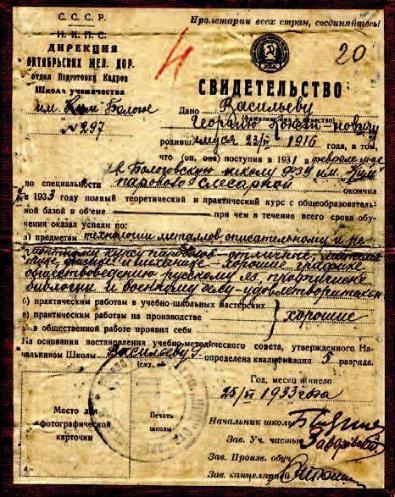 С. С. С. Р.
Н. К. П. С.
ДИРЕКЦИЯ
ОКТЯБРЬСКИХ ЖЕЛ. ДОР.
отдел Подготовку Кадров
Школа ученичества
им. Ким Бологое
№ 297
Пролетарии всех стран, соединяйтесь!
4
20
СВИДЕТЕЛЬСТВО
Дано Васильеву
Георгию
родивш 23/ 1916 года, в том,
что (он, она) поступил в 1931 феврале
в Бологовскую школу ФЗУ им. Ким
по специальности паровозо слесарной окончил
в 1933 полный теоретический и практический курс с общеобразовательной
базой в об'еме при чем в течение всего срока обучения
оказал успехи по:
а) предметам технологии металлов, описательному и
курсу паровозов - отличные,
физике и хорошие, графике
обществоведению русскому яз
биологии и военному делу - удовлетворительн
б) практическим работам в учебно-школьных мастерских
практическим работам на производстве хорошие
в общественной работе проявил себя
На основании постановления учебно-методического совета, утвержденного
Начальником Школы Васильеву Г. определена квалификация 5 разряда.
Год, месяц и число
25/ 1933 года
Место для
фотографической
карточки
Печать
школы
Начальник школы
Зав. Уч. частью
Зав. Произв. обуч.
Зав. канцелярией